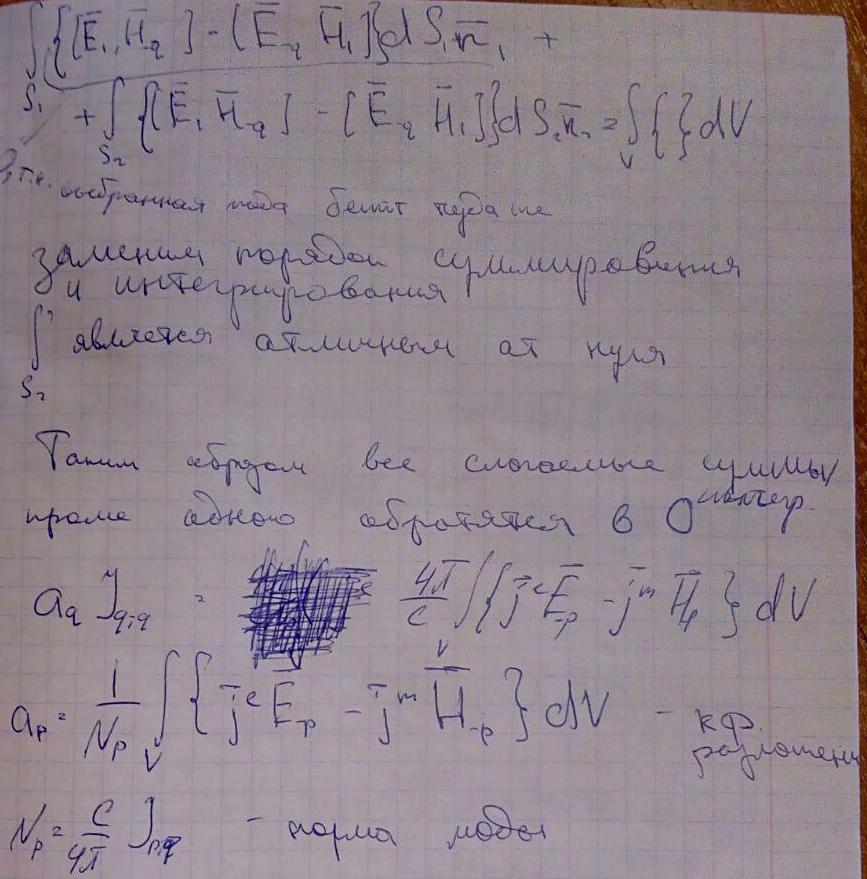 ∫_{S₁} {[Ē₁, H̄_{-q}] - [Ē_{-q} H̄₁]} dS₁ n̄₁ +
+ ∫_{S₂} {[Ē₁ H̄_{-q}] - [Ē_{-q} H̄₁]} dS₂ n̄₂ = ∫_V { } dV
т.к. выбранная мода бежит туда же
заменим порядок суммирования
и интегрирования
∫_{S₂} является атличным ат нуля
Таким образом все слогаемые суммы
кроме одного обратятся в 0 интегр.
a_q J_{q,-q} = 4π/c ∫_V {j̄^e Ē_{-p} - j̄^m H̄_{-p}} dV
a_p = 1/N_p ∫_V {j̄^e Ē_{-p} - j̄^m H̄_{-p}} dV - кф.
разложени
N_p = c/4π - норма моды